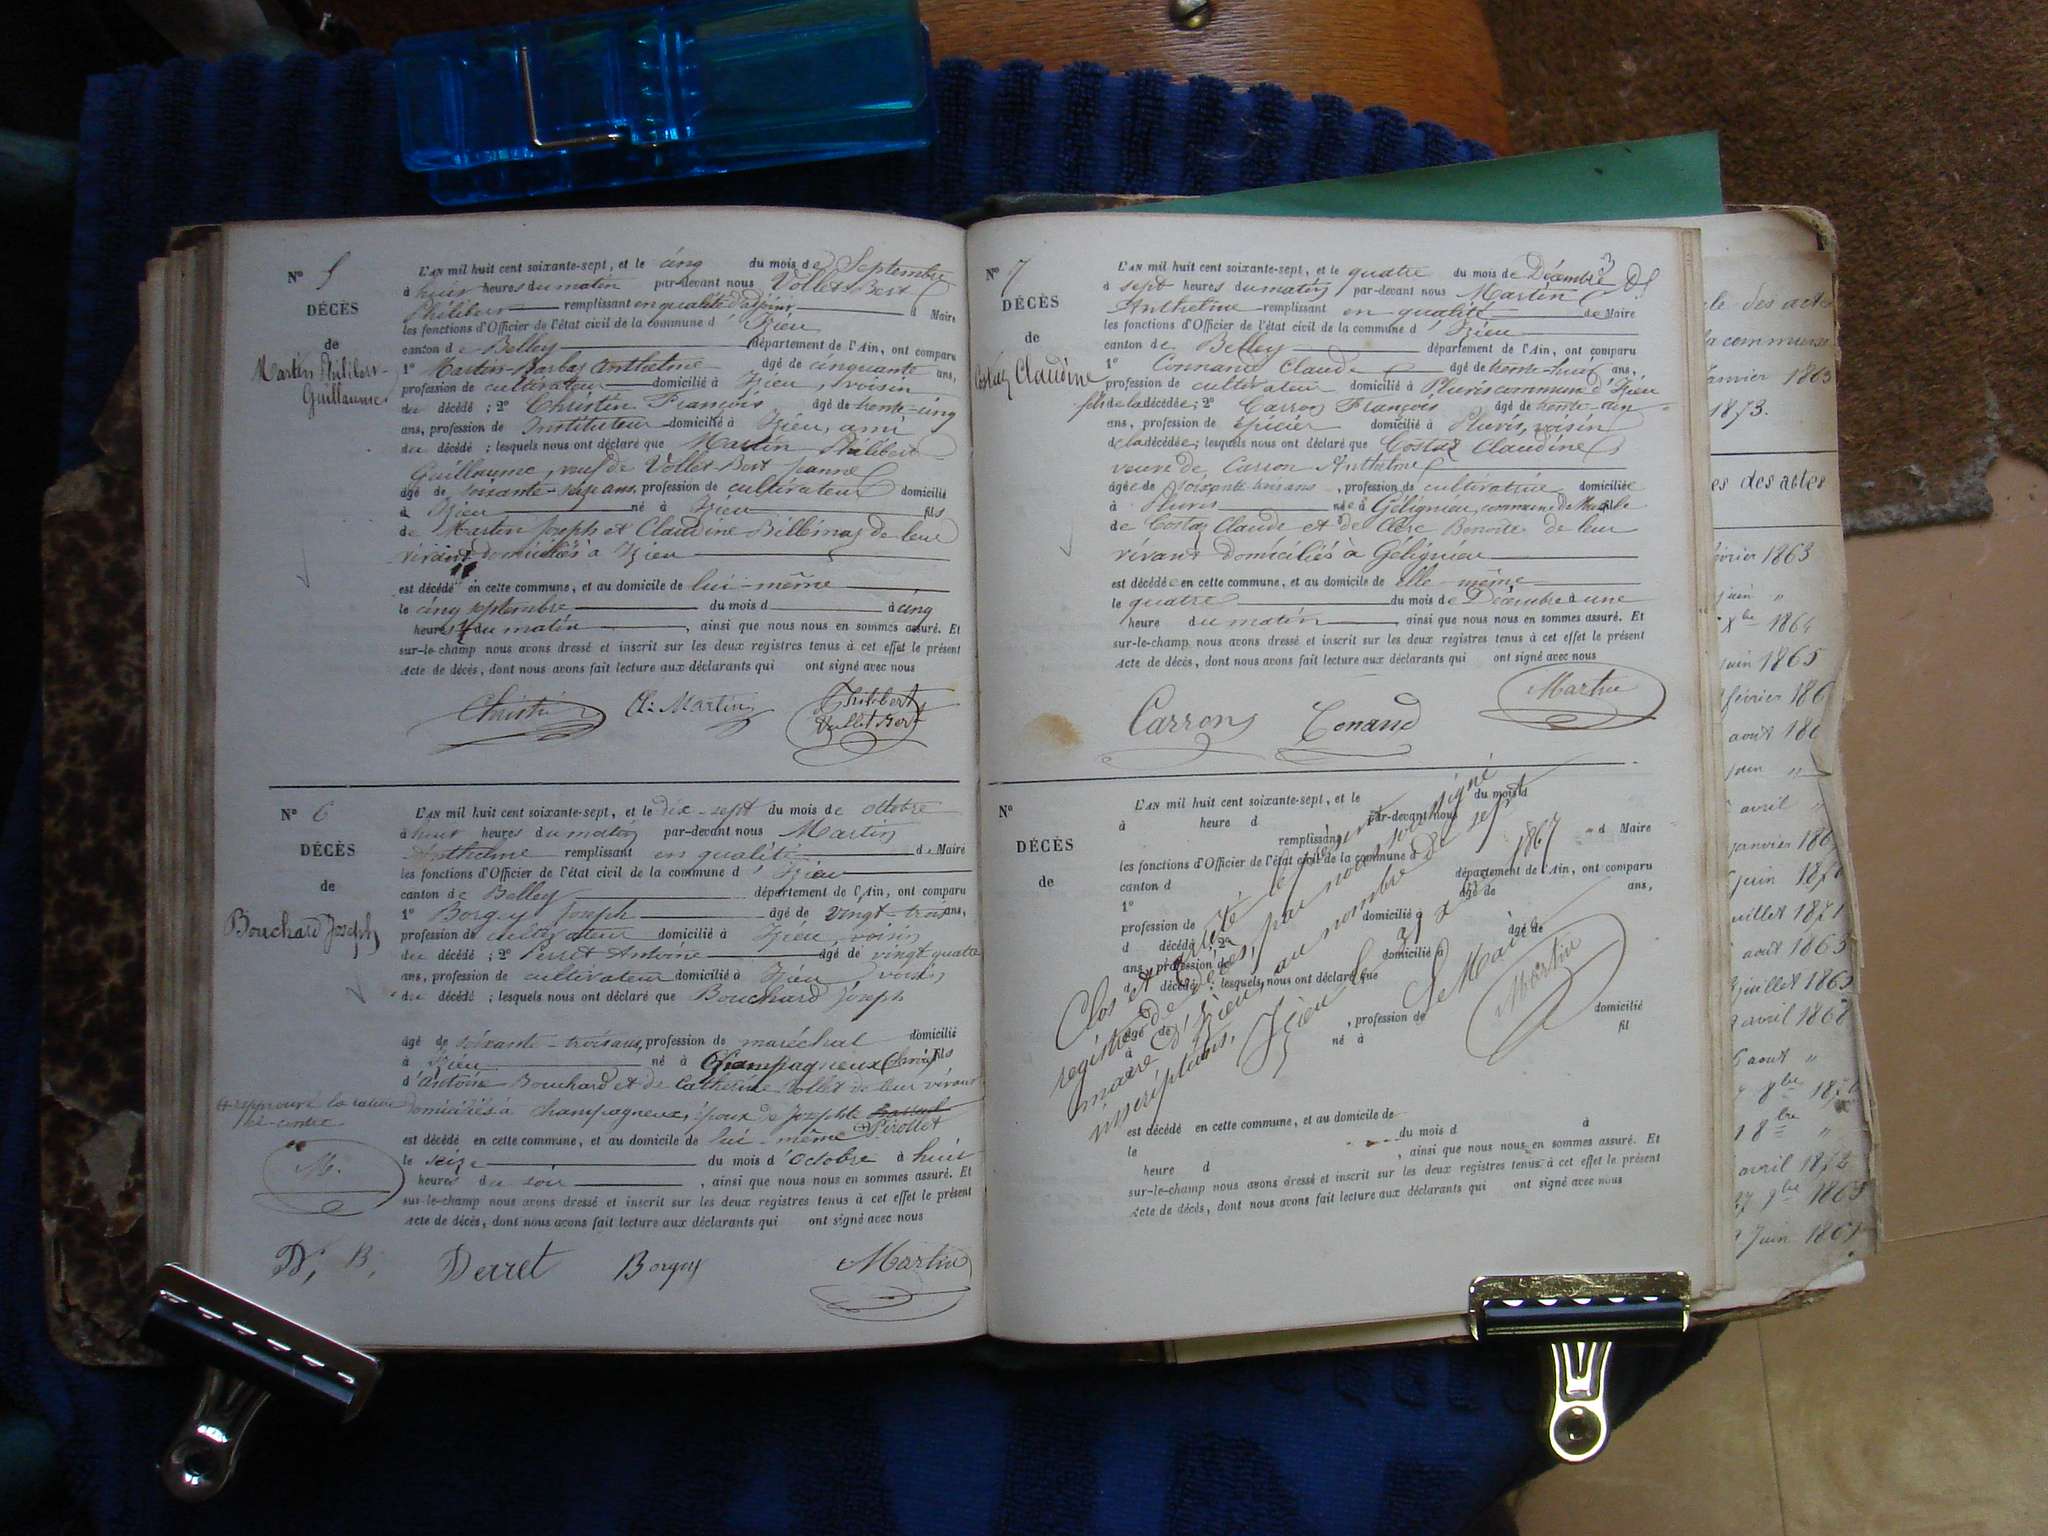 N° 5
DÉCÈS
de
Martin Philibert
Guillaume
L'AN mil huit cent soixante-sept, et le cinq du mois de Septembre
à huit heures du matin par-devant nous Vollet-Bert
Philibert remplissant en qualité d'adjoint d Maire
les fonctions d'Officier de l'état civil de la commune d'Izieu
canton de Belley département de l'Ain, ont comparu
1° Martin-Barbaz Anthelme âgé de cinquante ans,
profession de cultivateur domicilié à Izieu, voisin
du décédé ; 2° Christin François âgé de trente-cinq
ans, profession de Instituteur domicilié à Izieu, ami
du décédé ; lesquels nous ont déclaré que Martin Philibert
Guillaume, veuf de Vollet-Bert Jeanne
âgé de soixante-seize ans, profession de cultivateur domicilié
à Izieu né à Izieu fils
de Martin Joseph et Claudine Billémaz de leur
vivant domiciliés à Izieu
est décédé en cette commune, et au domicile de lui-même
le cinq septembre du mois d à cinq
heures du matin, ainsi que nous nous en sommes assuré. Et
sur-le-champ nous avons dressé et inscrit sur les deux registres tenus à cet effet le présent
Acte de décès, dont nous avons fait lecture aux déclarants qui ont signé avec nous
Christin Martin Philibert
Vullet Bert
N° 6
DÉCÈS
de
Bouchard Joseph
L'AN mil huit cent soixante-sept, et le dix-sept du mois de octobre
à huit heures du matin par-devant nous Martin
Anthelme remplissant en qualité de Maire
les fonctions d'Officier de l'état civil de la commune d'Izieu
canton de Belley département de l'Ain, ont comparu
1° Borgey Joseph âgé de vingt-trois ans,
profession de cultivateur domicilié à Izieu voisin
du décédé ; 2° Perret Antoine âgé de vingt quatre
ans, profession de cultivateur domicilié à Izieu voisin
du décédé ; lesquels nous ont déclaré que Bouchard Joseph
âgé de soixante-trois ans, profession de maréchal domicilié
à Izieu né à Champagneux (Savoie) fils
d'Antoine Bouchard et de Catherine Vollet de leur vivant
domiciliés à Champagneux, époux de Josephte
Pirollet
approuvé la rature
ci-contre
M.
est décédé en cette commune, et au domicile de lui-même
le seize du mois d'Octobre à huit
heures du soir, ainsi que nous nous en sommes assuré. Et
sur-le-champ nous avons dressé et inscrit sur les deux registres tenus à cet effet le présent
Acte de décès, dont nous avons fait lecture aux déclarants qui ont signé avec nous
B. Perret Borgey Martin
N° 7
DÉCÈS
de
Costaz Claudine
L'AN mil huit cent soixante-sept, et le quatre du mois de Décembre
à sept heures du matin par-devant nous Martin
Anthelme remplissant en qualité de Maire
les fonctions d'Officier de l'état civil de la commune d'Izieu
canton de Belley département de l'Ain, ont comparu
1° Connand Claude âgé de trente-huit ans,
profession de cultivateur domicilié à Pluris commune d'Izieu
fils de la décédée ; 2° Carron François âgé de trente-un
ans, profession de épicier domicilié à Pluris, voisin
de la décédée ; lesquels nous ont déclaré que Costaz Claudine
veuve de Carron Anthelme
âgée de soixante trois ans, profession de cultivatrice domiciliée
à Pluris née à Gélignieu, commune de
de Costaz Claude et de Clerc Benoite de leur
vivant domiciliés à Gélignieu
est décédée en cette commune, et au domicile de elle-même
le quatre du mois de Décembre à une
heure du matin, ainsi que nous nous en sommes assuré. Et
sur-le-champ nous avons dressé et inscrit sur les deux registres tenus à cet effet le présent
Acte de décès, dont nous avons fait lecture aux déclarants qui ont signé avec nous
Carron Conand Martin
N°
DÉCÈS
de
L'AN mil huit cent soixante-sept, et le du mois d
à heure d par-devant nous
remplissant d Maire
les fonctions d'Officier de l'état civil de la commune d
canton d département de l'Ain, ont comparu
1° âgé de ans,
profession de domicilié à
d décédé ; 2° âgé de
ans, profession de domicilié à
d décédé ; lesquels nous ont déclaré que
âgé de , profession de domicilié
à né à fil
est décédé en cette commune, et au domicile de
le du mois d à
heure d , ainsi que nous nous en sommes assuré. Et
sur-le-champ nous avons dressé et inscrit sur les deux registres tenus à cet effet le présent
Acte de décès, dont nous avons fait lecture aux déclarants qui ont signé avec nous
Clos et arrêté le présent
registre de décès, par nous soussigné
maire d'Izieu, au nombre de sept
inscriptions. Izieu le 31 Xbre 1867
Le Maire
Martin
des actes
la commune
janvier 1863
1873.
es des actes
février 1863
juin "
Xbre 1864
juin 1865
février 186
août 186
juin "
avril "
janvier 186
juin 1870
juillet 1871
août 1865
juillet 1865
avril 1868
août "
8bre 1870
8bre "
avril 1872
27 9bre 1865
Juin 1867